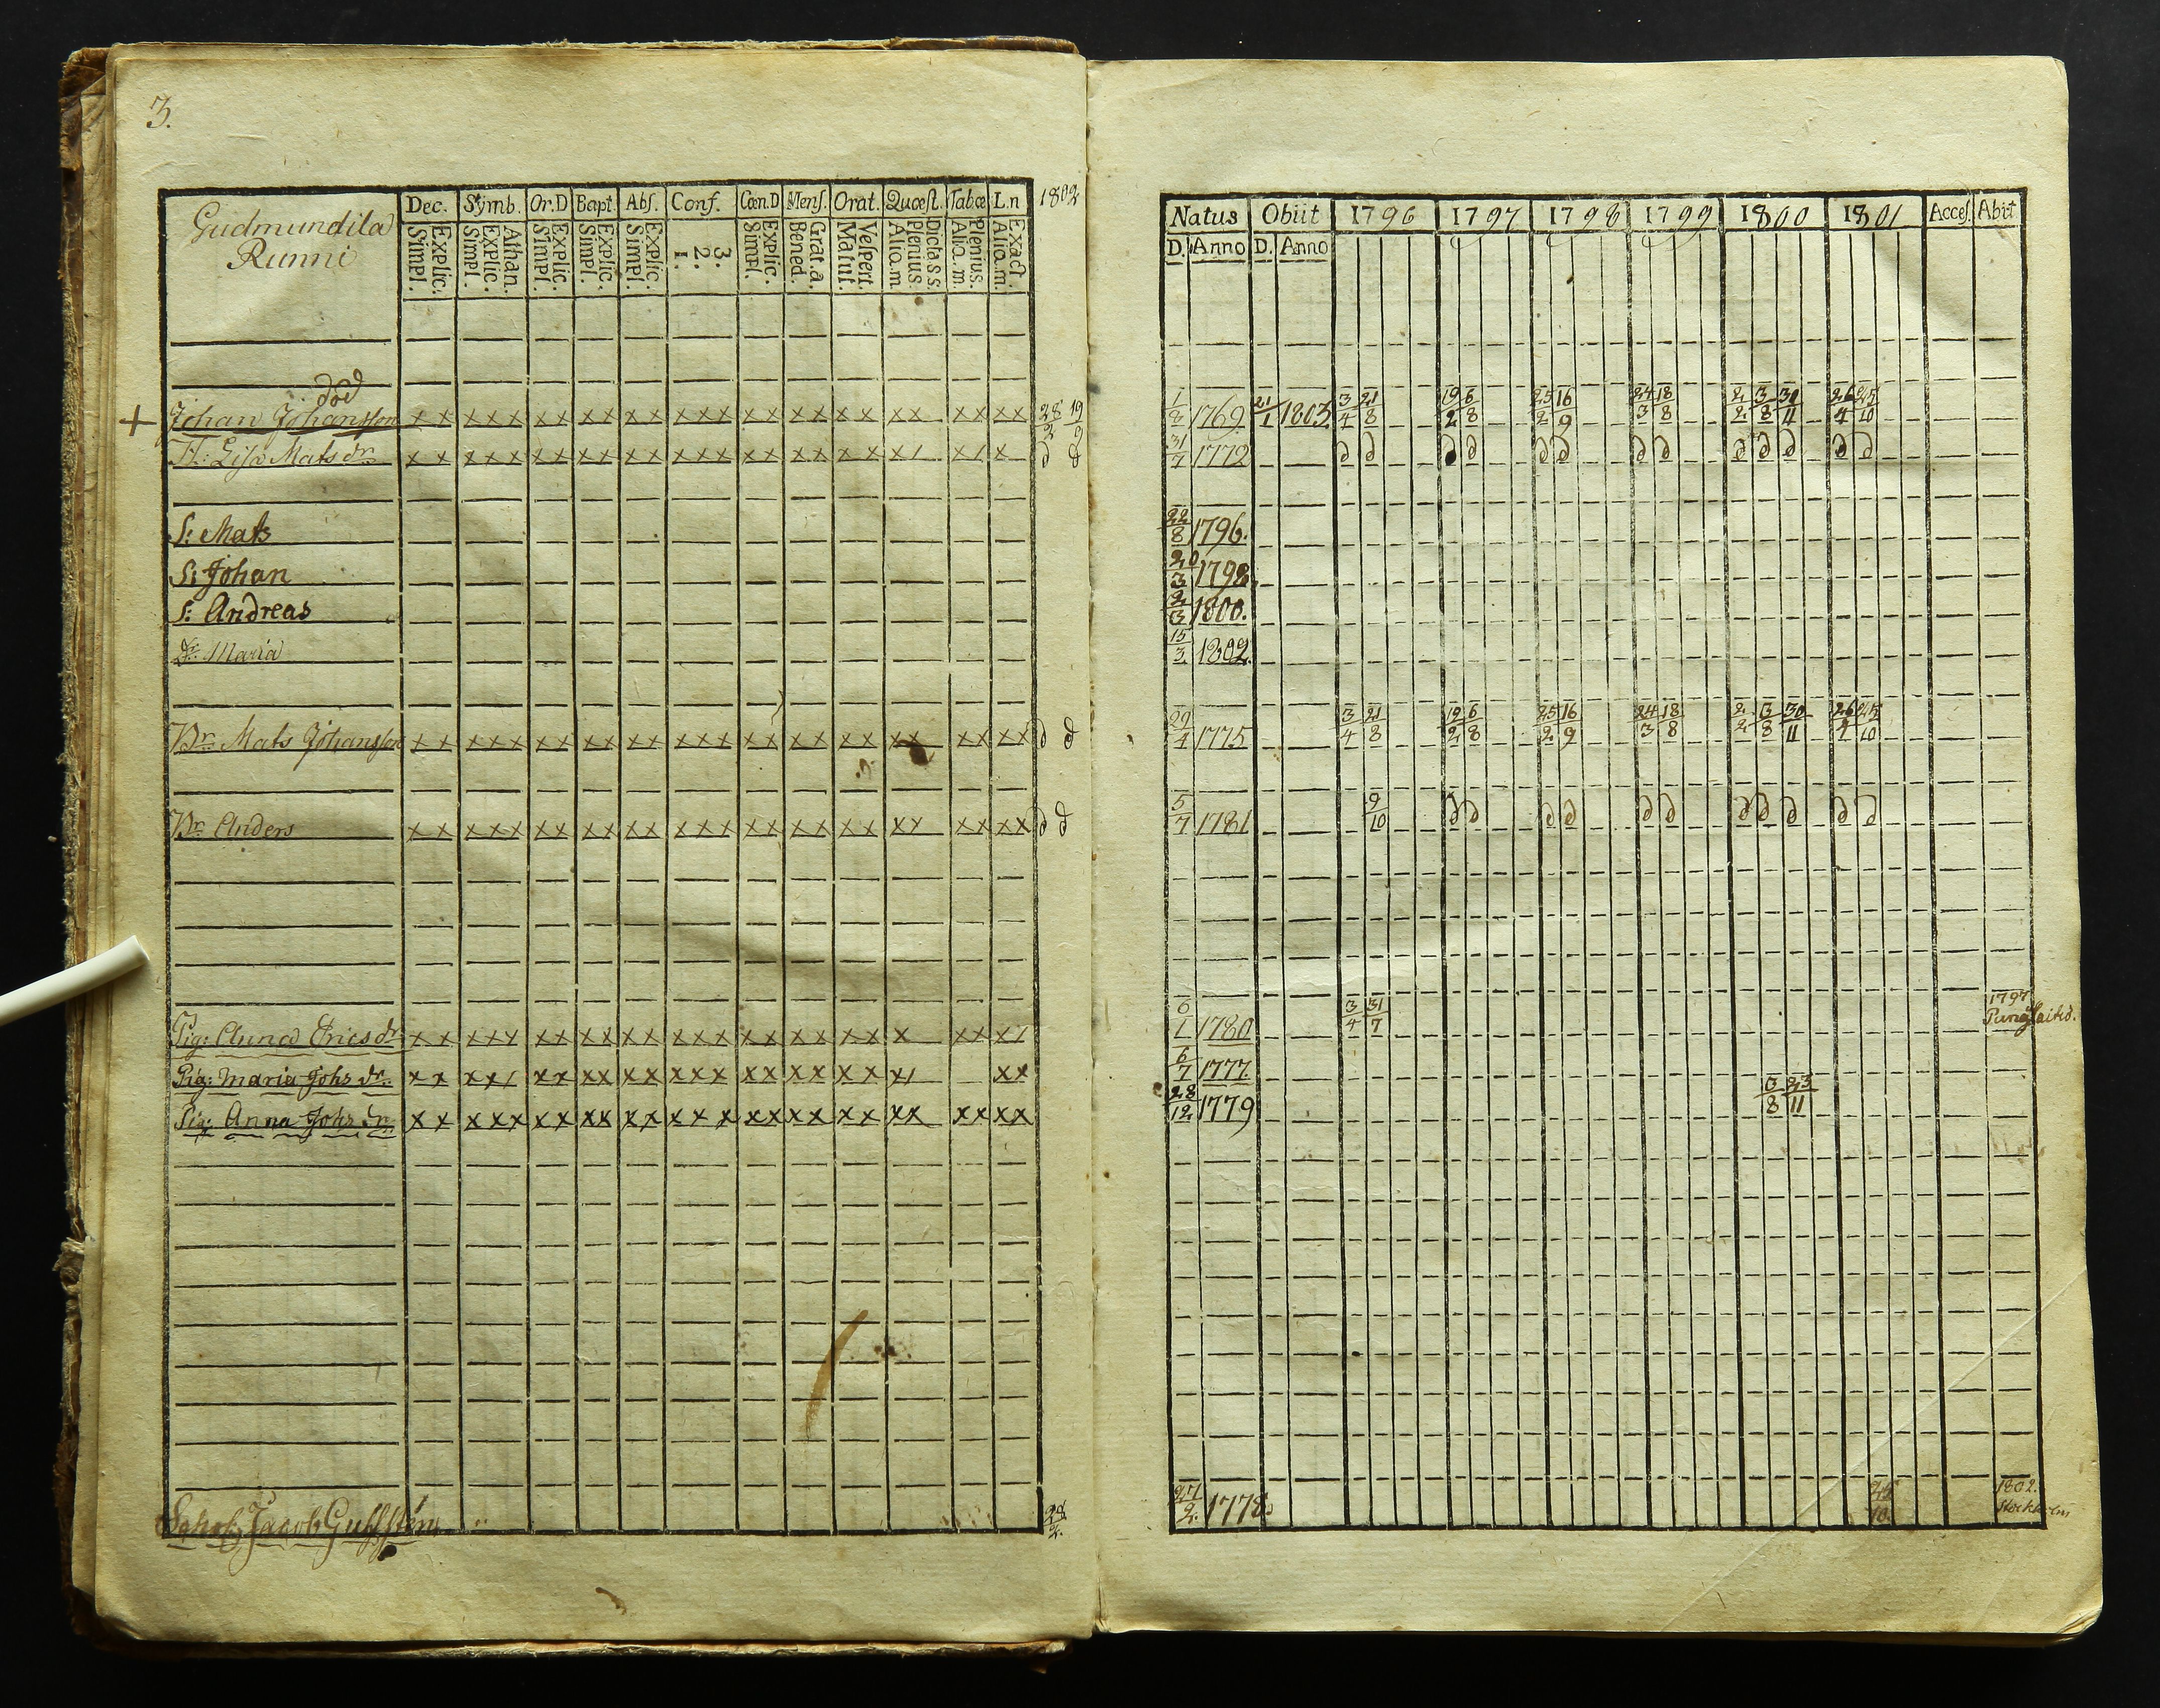 3.
Gudmundila
Runni
Dec. Symb. Or.D Bapt. Abs. Conf. Cœn.D Mens. Orat. Quæst. Tabæ L.n 1802
Simpl. Explic. Simpl. Explic. Athan. Simpl. Explic. Simpl. Explic. Simpl. Explic. 1. 2. 3. Simpl. Explic. Bened. Grat. a. Matut. Vespert. Aliq. m. Plenius. Dicta s s. Aliq. m. Plenius. Aliq. m. Exact.
död
+ Johan Johansson x x x x x x x x x x x x x x x x x x x x x x x x x x x 28/3 19/9
H: Lisa Mats dr x x x x x x x x x x x x x x x x x x x x x / x / x d d
S: Mats
S: Johan
S: Andreas
Dr. Maria
Br. Mats Johansson x x x x x x x x x x x x x x x x x x x x x x x x x x d d
Br. Anders x x x x x x x x x x x x x x x x x x x x x x x x x x d d
Pig: Anna Erics dr x x x x x x x x x x x x x x x x x x x x x x x x /
Pig: Maria Johs dr. x x x x / x x x x x x x x x x x x x x x x x / x x
Pig: Anna Johs dr. x x x x x x x x x x x x x x x x x x x x x x x x x x
Jacob 28/2.
Natus Obiit 1796 1797 1798 1799 1800 1801 Acces. Abit
D. Anno D. Anno
1/8 1769 21/1 1803 3/4 21/8 19/2 6/8 25/2 16/9 24/3 18/8 2/2 3/8 30/11 26/4 25/10
31/7 1772 d d d d d d d d d d d d d
22/8 1796.
20/3 1798
2/3 1800.
15/3. 1802.
29/4 1775 3/4 21/8 19/2 6/8 25/2 16/9 24/3 18/8 2/2 3/8 30/11 26/4 25/10
5/7 1781 9/10 d d d d d d d d d d d
6/1 1780 3/4 31/7 1797
6/7 1777
28/12 1779 3/8 23/11
27/2. 1778 25/10. 1802.
Stockholm